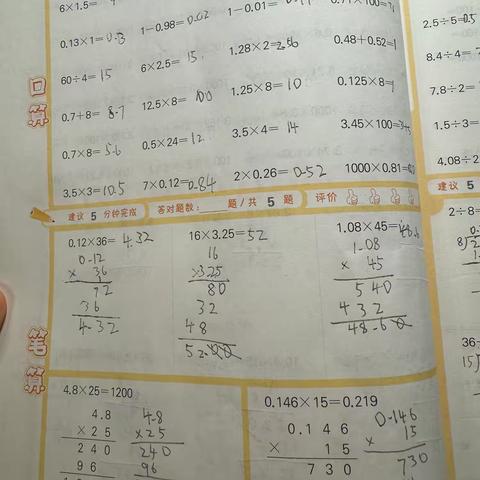 6×1.5=
0.13×1=0.13
1－0.98=0.02
1－0.01=
2.5÷5=0.5
60÷4=15
6×2.5=15
1.28×2=2.56
0.48+0.52=1
8.4÷4=
口算
0.7+8=8.7
12.5×8=100
1.25×8=10
0.125×8=1
7.8÷2=
0.7×8=5.6
0.5×24=12
3.5×4=14
3.45×100=345
1.5÷3=
3.5×3=10.5
7×0.12=0.84
2×0.26=0.52
1000×0.81=
4.08÷2
建议 5 分钟完成
答对题数：____题/共 5 题
评价
建议 5
0.12×36=4.32
16×3.25=52
1.08×45=48.6
2÷8=
0.12
×36
72
36
4.32
16
×3.25
80
32
48
52.00
1.08
×45
540
432
48.60
笔算
4.8×25=1200
0.146×15=0.219
4.8
×25
240
96
4.8
×25
240
96
0.146
×15
730
0.146
×15
730